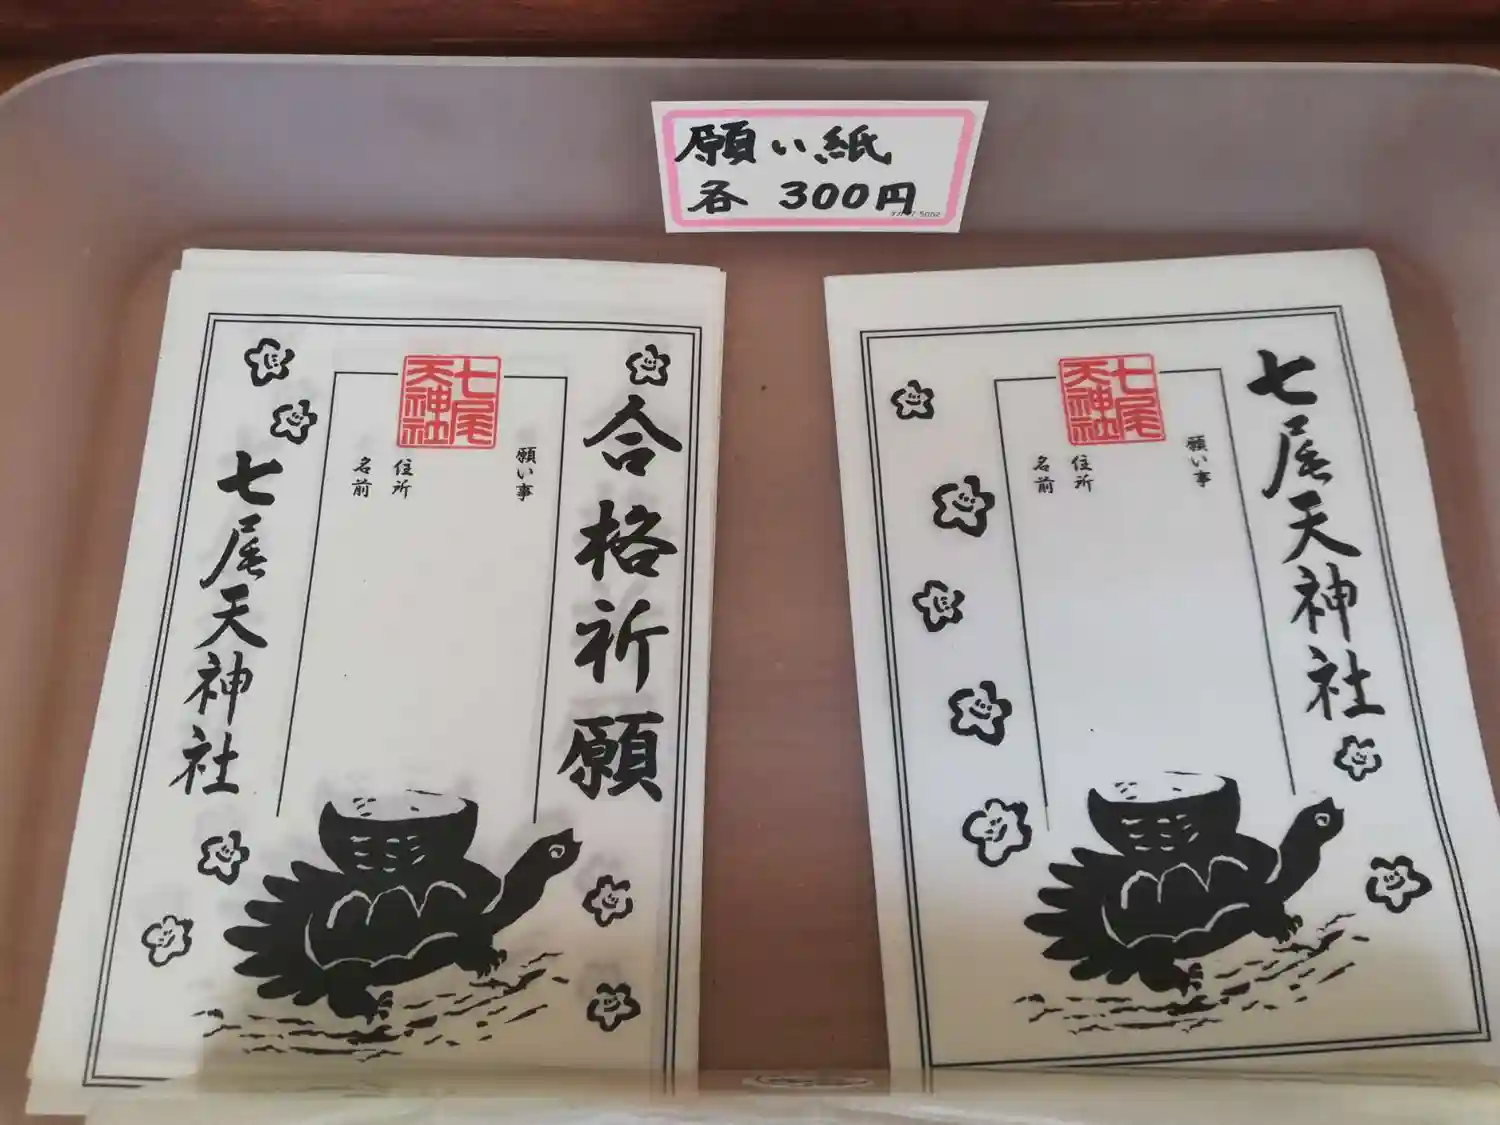 願い紙
各 300円
合格祈願
七尾天神社
願い事
住所
名前
七尾天神社
七尾天神社
七尾天神社
願い事
住所
名前